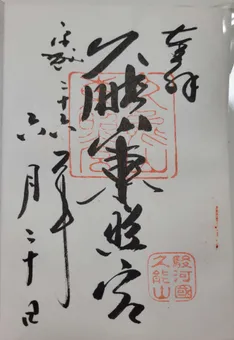 奉拝
久能山東照宮
平成二十六年
六月二十日
駿河國
久能山